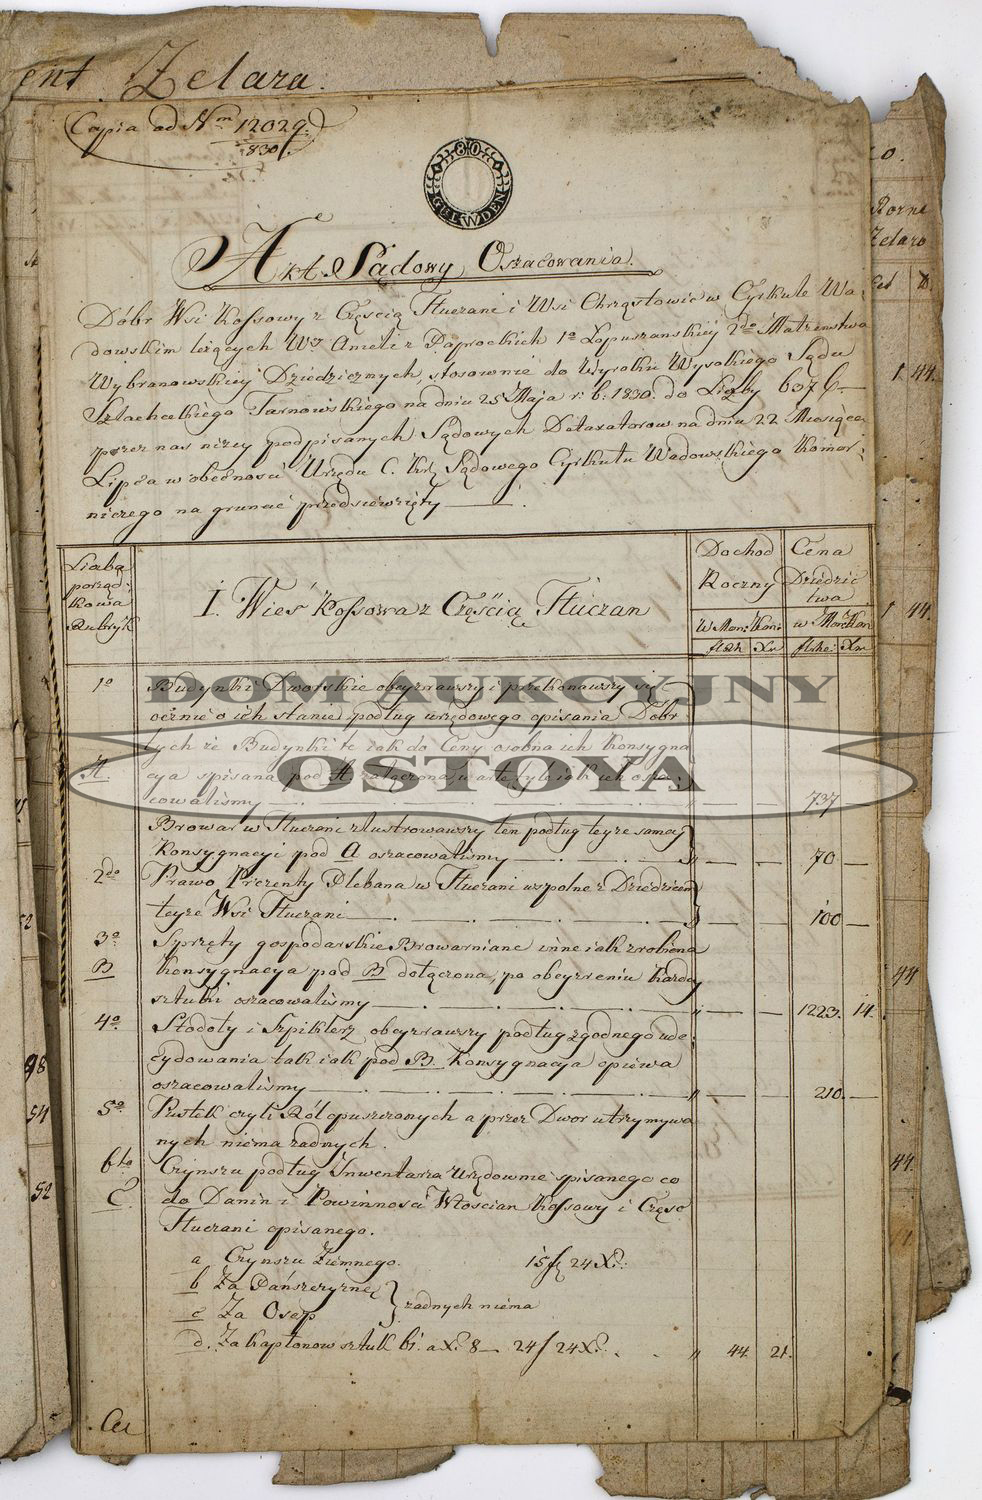 ent Zelaza.
Copia ad Nrm 12029.
830
80
GULDEN
Akt Sądowy Oszacowania.
Dóbr Wsi Kossowy z Częścią Tłuczani i Wsi Chrząstowic w Cyrkule Wa-
dowskim leżących Wy Ameli z Paprockich 1o Łopuszanskiey 2do Małżenstwa
Wybranowskiey Dziedzicznych, stosownie do Wyroku Wysokiego Sądu
Szlacheckiego Tarnowskiego na dniu 25 Maja r: b: 1830. do Liczby 6376
przez nas niżey podpisanych Sądowych Detaxatorow na dniu 22 Miesiąca
Lipca w obecnosci Urzędu C. Kr. Sądowego Cyrkułu Wadowskiego Komor-
niczego na gruncie przedsiewzięty
Liczba
porząd-
kowa
Rubryk
I. Wieś Kossowa z Częścią Tłuczan
Dochod
Roczny
w Mon: Kon:
Xr
Cena
Dziedzic
twa
w Mon: Kon
Xr
1o Budynki Dworskie obeyzrawszy i przekonawszy się
ocznie o ich stanie, podług urzędowego opisania Dobr
tych że Budynki te iak do Ceny osobna ich Konsygna
A cya spisana pod A załączona, warte, tyle iak ich osza-
cowalismy 737
Browar w Tłuczani zlustrowawszy ten podług teyże samey
Konsygnacyi pod A oszacowalismy 70
2do Prawo Prezenty Plebana w Tłuczani wspolne z Dziedzicem
teyże Wsi Tłuczani 100
3o Sprzęty gospodarskie Browarniane inne iak zrobiona
B Konsygnacya pod B dołączona, po obeyzreniu każdey
sztuki oszacowalismy 1223. 14.
4o Stodoły i Szpiklerz obeyzrawszy podług zgodnego ude-
cydowania tak iak pod B. Konsygnacya opiewa
oszacowalismy 210.
5o Pustek czyli Ról opuszczonych a przez Dwor utrzymywa
nych niema żadnych.
6to Czynszu podług Inwentarza Urzędownie spisanego co
C. do Danin i Powinnosci Włoscian Kossowy i Częsc
Tłuczani opisanego.
a Czynszu Ziemnego. 15 f 24 X.
b Za Dańszczyznę
c Za Osep
żadnych niema
d. Za Kapłonow sztuk 61. a X. 8 24 f 24 X. 44 21.
DOM AUKCYJNY
OSTOYA
Rozne
Zelazo
1 44.
1 44.
44
44.
52
98
54
52